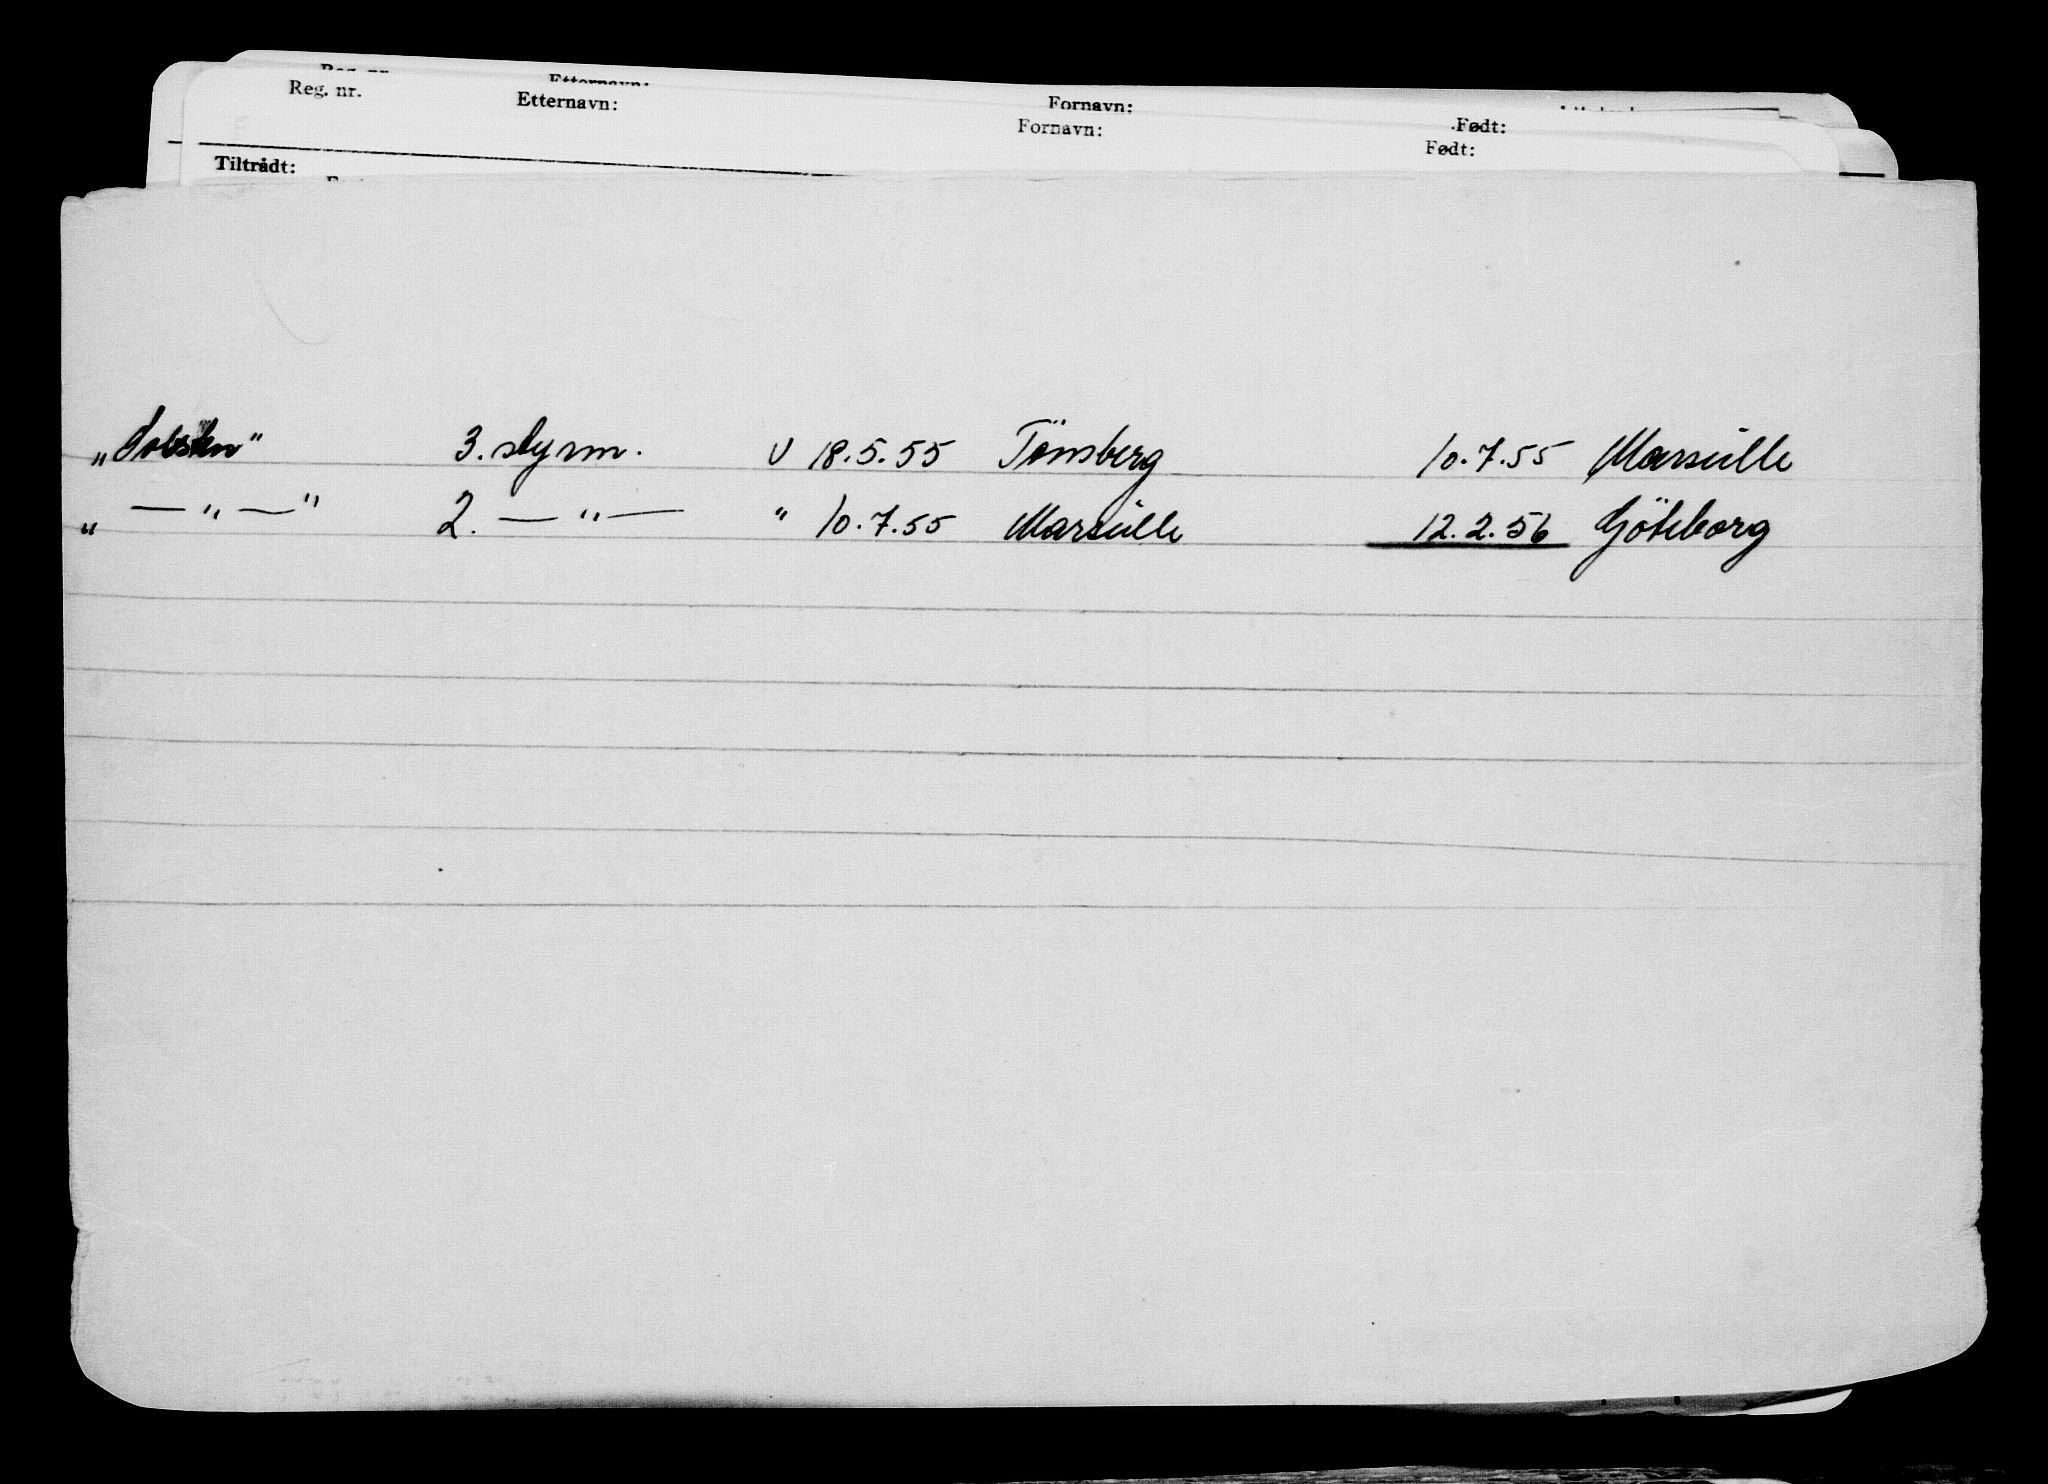 Reg. nr. Etternavn:
Fornavn:
Født:
Reg. nr. Etternavn: Fornavn: Født:
Tiltrådt:
„Solsten" 3. styrm. U 18.5.55 Tönsberg 10.7.55 Marseille
„ — " — " 2. — " — " 10.7.55 Marseille 12.2.56 Göteborg